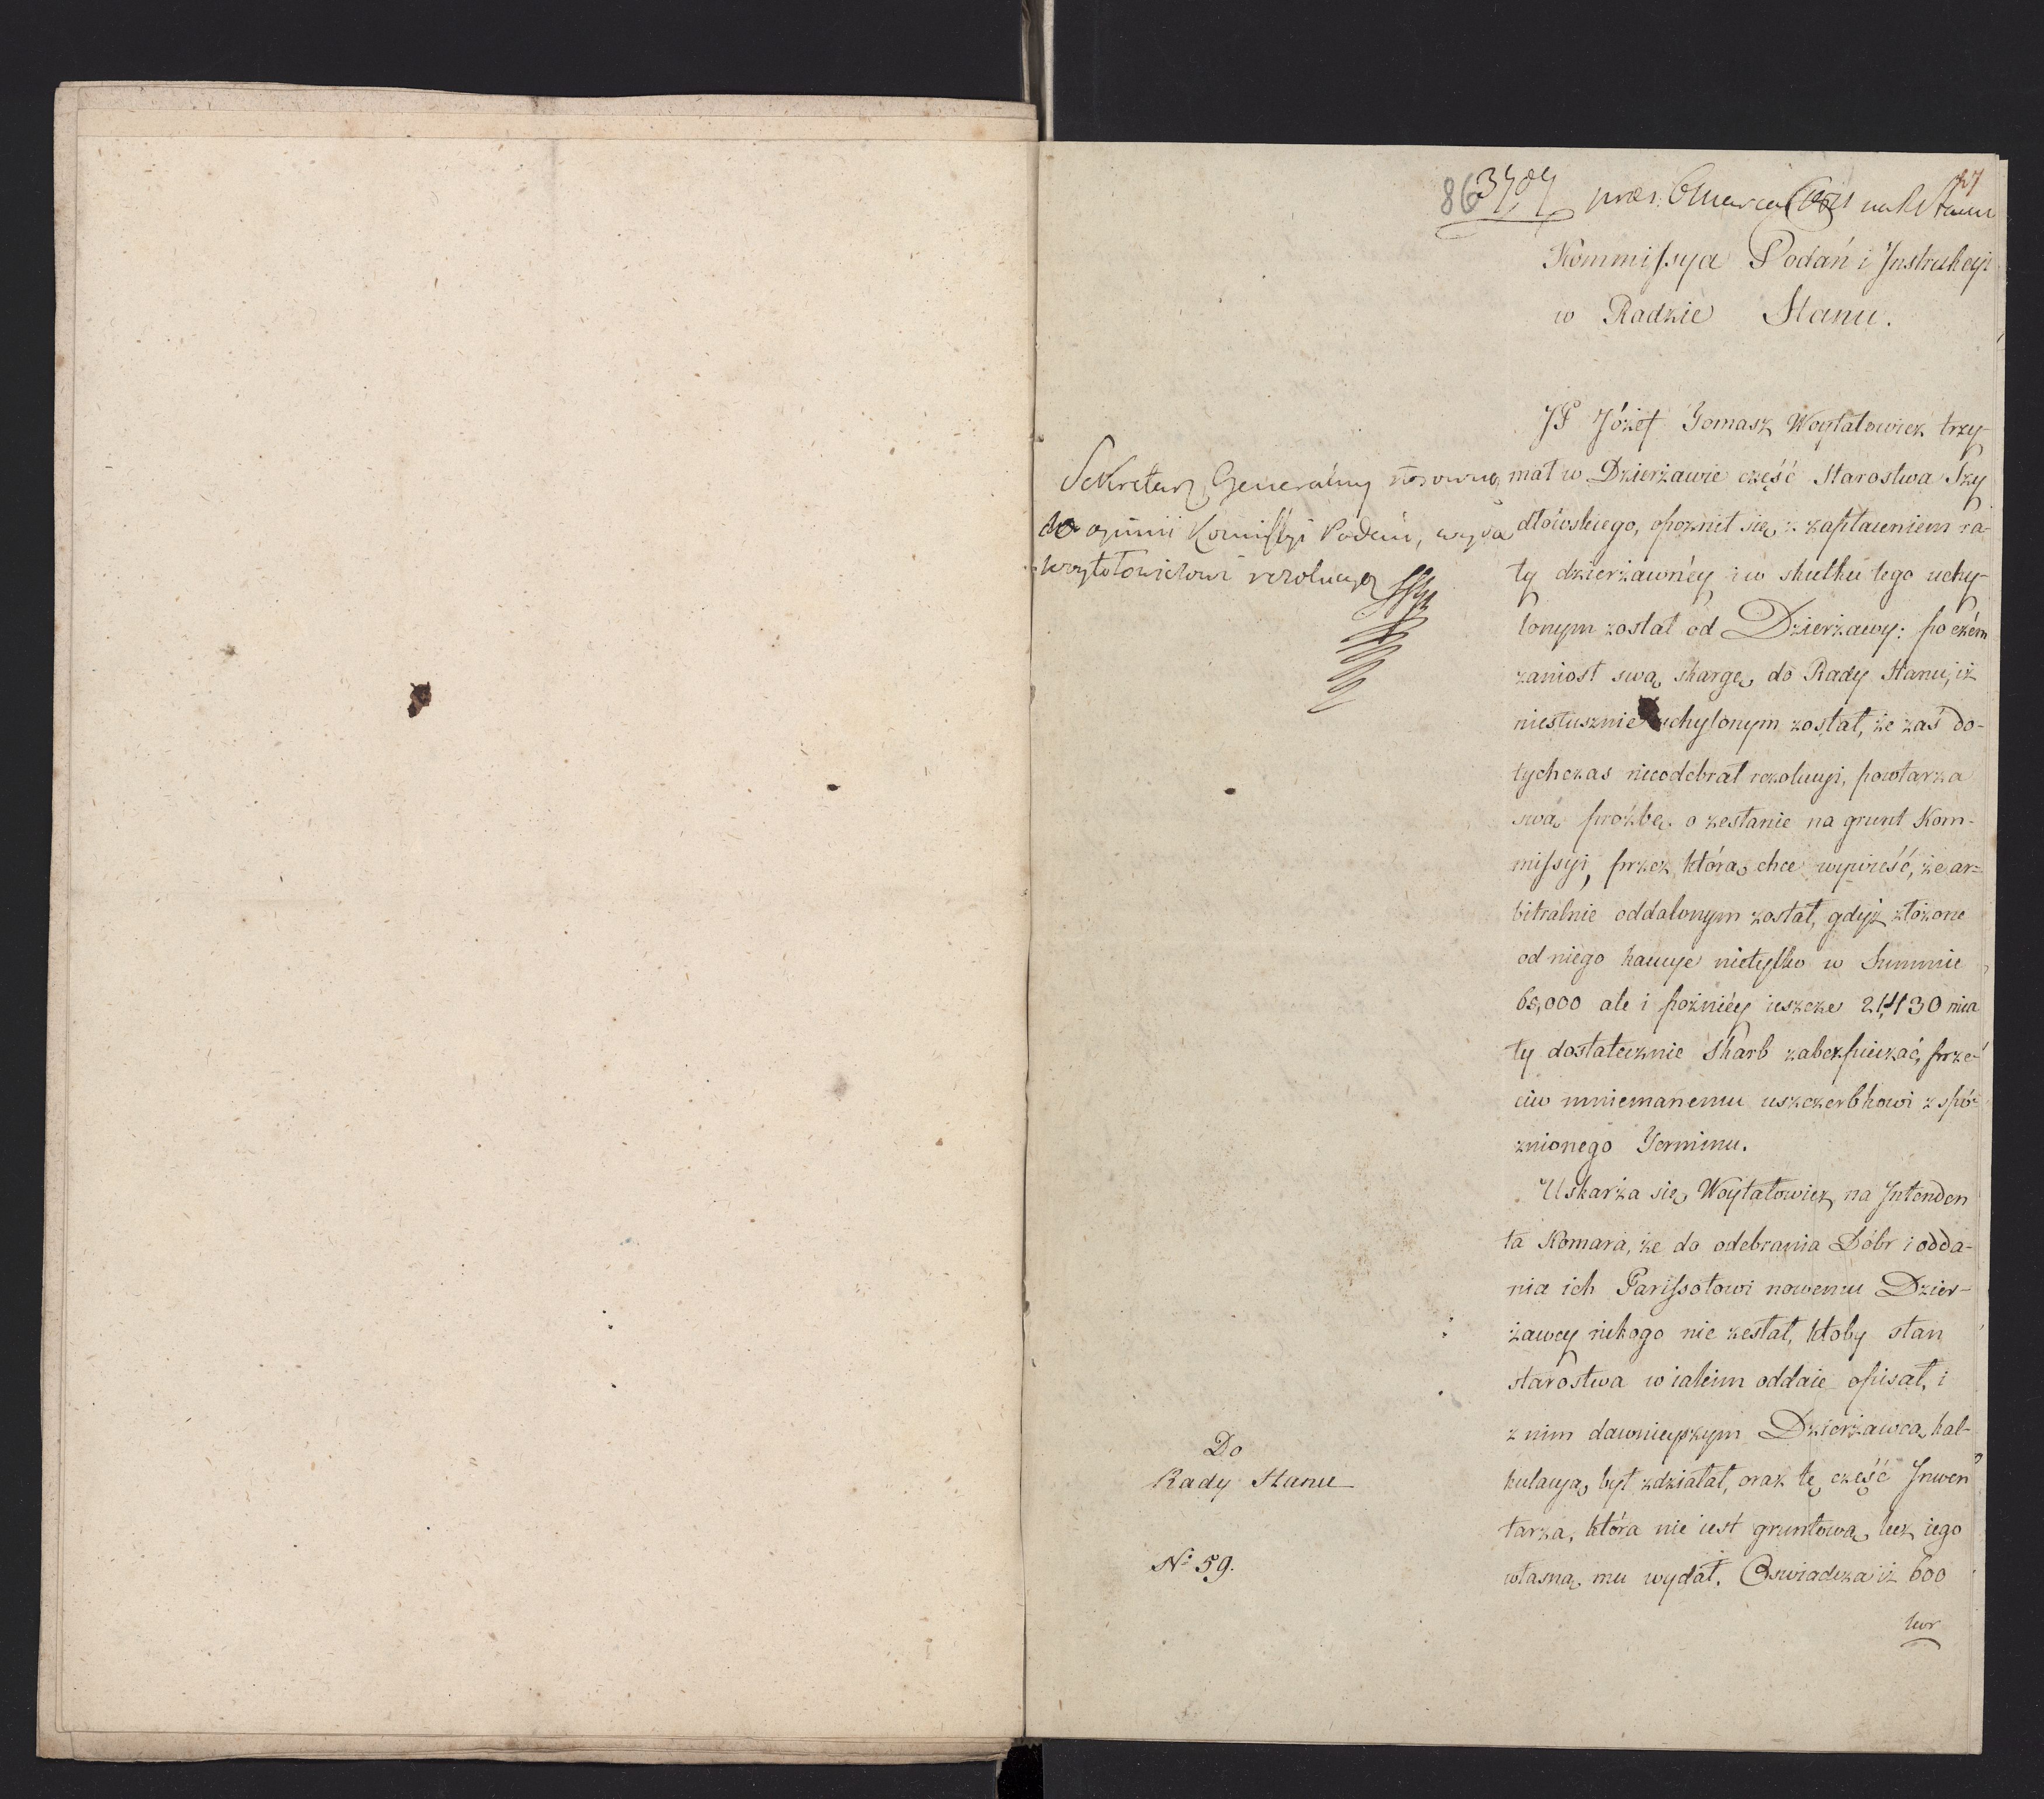 86
3707
27
Kommissya Podań i Instrukcyi
w Radzie Stanu.
JP Józef Tomasz Woytałowicz trzy-
mał w Dzierżawie część Starostwa Szy
dłowskiego, opoznił się z zapłaceniem ra-
ty dzierżawnéy, i w skutku tego uchy-
lonym został od Dzierżawy: poczém
zaniosł swą skargę do Rady Stanu, iż
niesłusznie uchylonym został, że zaś do-
tychczas nieodebrał rezolucyi, powtarza
swą proźbę o zesłanie na grunt Kom-
missyi, przez którą chce wywieść, że ar=
bitralnie oddalonym został, gdyż złożone
od niego kaucye nietylko w Summie
60,000 ale i poźniéy ieszcze 21,430 mia
ły dostatecznie Skarb zabezpieczać, prze-
ciw mniemanemu uszczerbkowi z spó-
znionego Terminu.
Uskarża się Woytałowicz na Intenden
ta Komara, że do odebrania Dóbr i odda-
nia ich Parissotowi nowemu Dzier-
żawcy nikogo nie zesłał, ktoby stan
starostwa w iakim oddaie opisał, i
z nim dawnieyszym Dzierżawcą kal-
kulacyą był zdziałał, oraz tę część Inwen
tarza, która nie iest gruntową lecz iego
własną mu wydał. Oswiadcza iż 600
kor
Sekretarz Generalny stosownie
do opinii Komissyi Podań, wyda
Woytołowiczowi rezolucyą
Do
Rady Stanu
No 59.